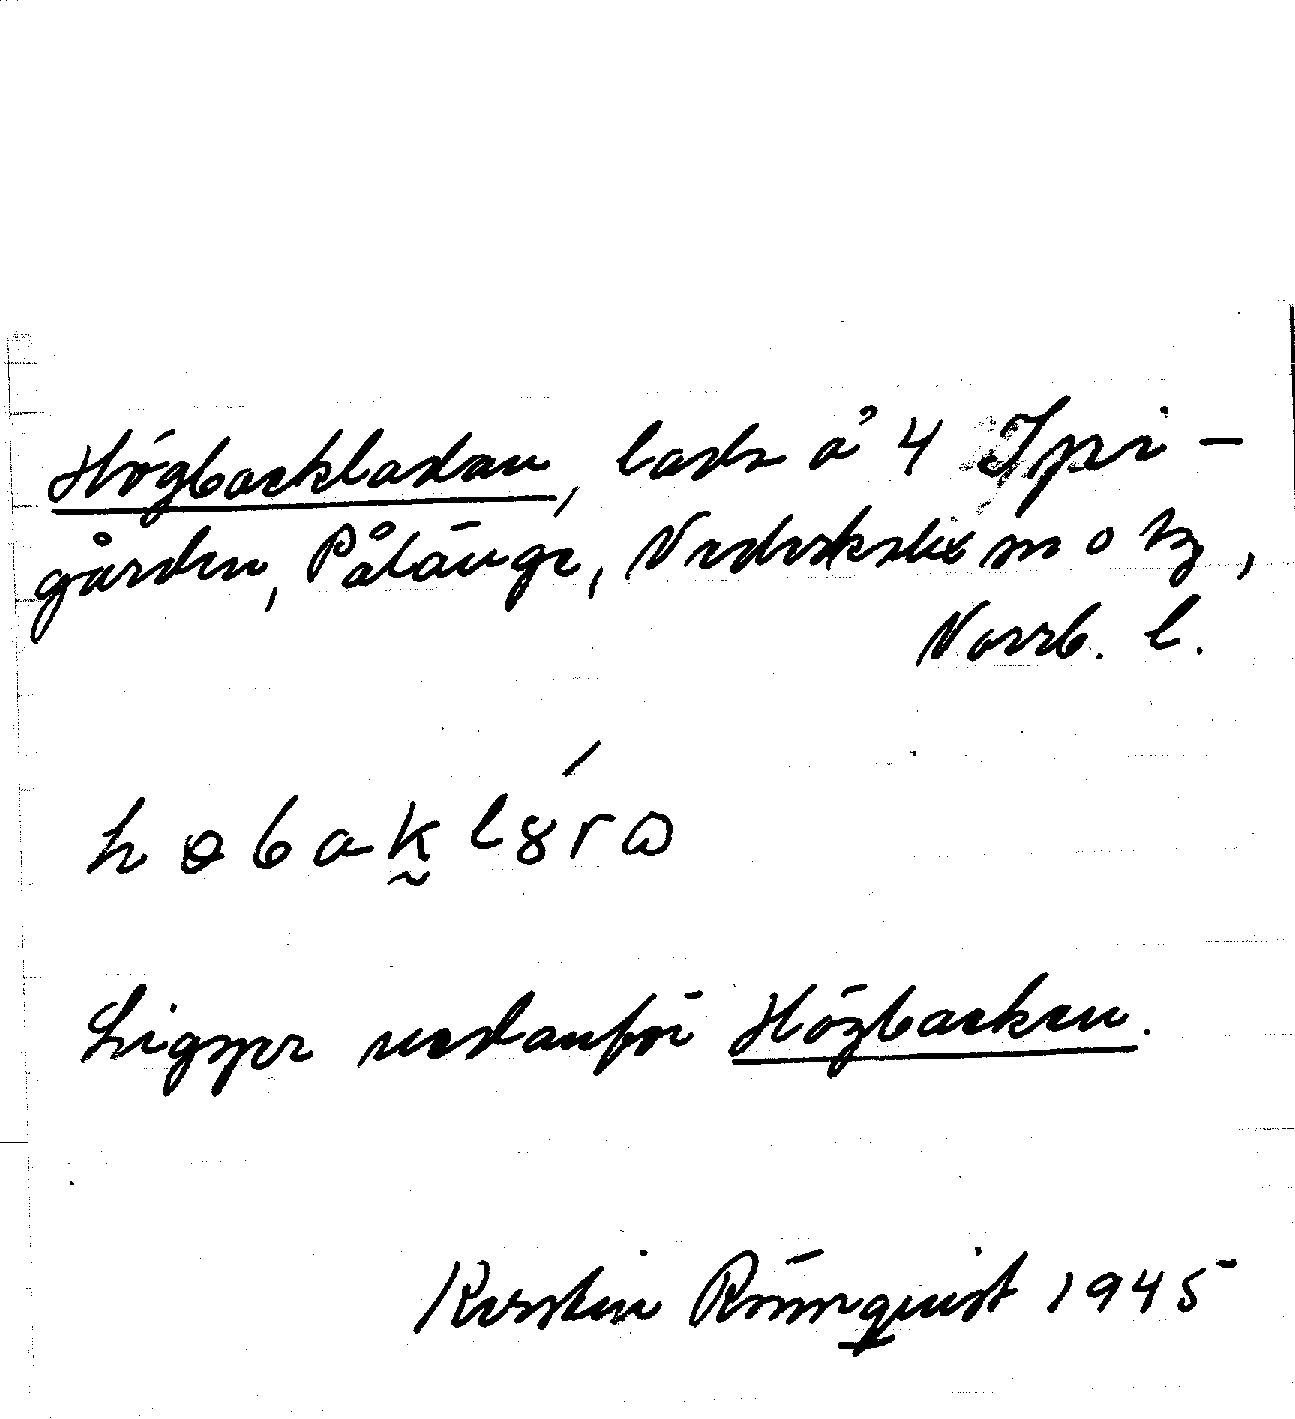 Högbackladan, lada å 4 Ipri-
gården, Pålänge, Nederkalix sn o tg,
Norrb. l.
høbak̰l8́rɷ
Ligger nedanför Högbacken.
Kerstin Rönnquist 1945